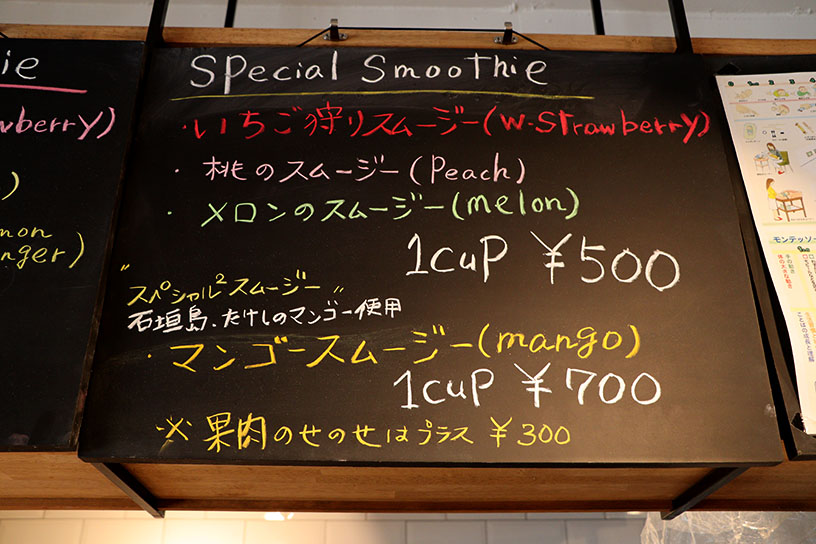 ie
wberry)
)
mon
nger)
Special Smoothie
・いちご狩りスムージー(w-Strawberry)
・桃のスムージー(Peach)
・メロンのスムージー(melon)
1cup ¥500
"スペシャル²スムージー"
石垣島.たけしのマンゴー使用
・マンゴースムージー(mango)
1cup ¥700
※果肉のせのせはプラス ¥300
モンテッソー
手の動き
体の大きな動き
ことばの成長と理解